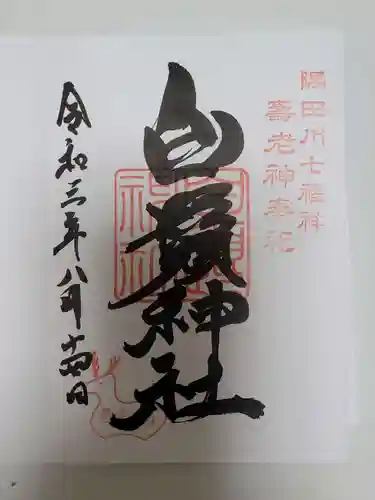 隅田川七福神
寿老神奉祀
白鬚神社
令和三年八月十四日